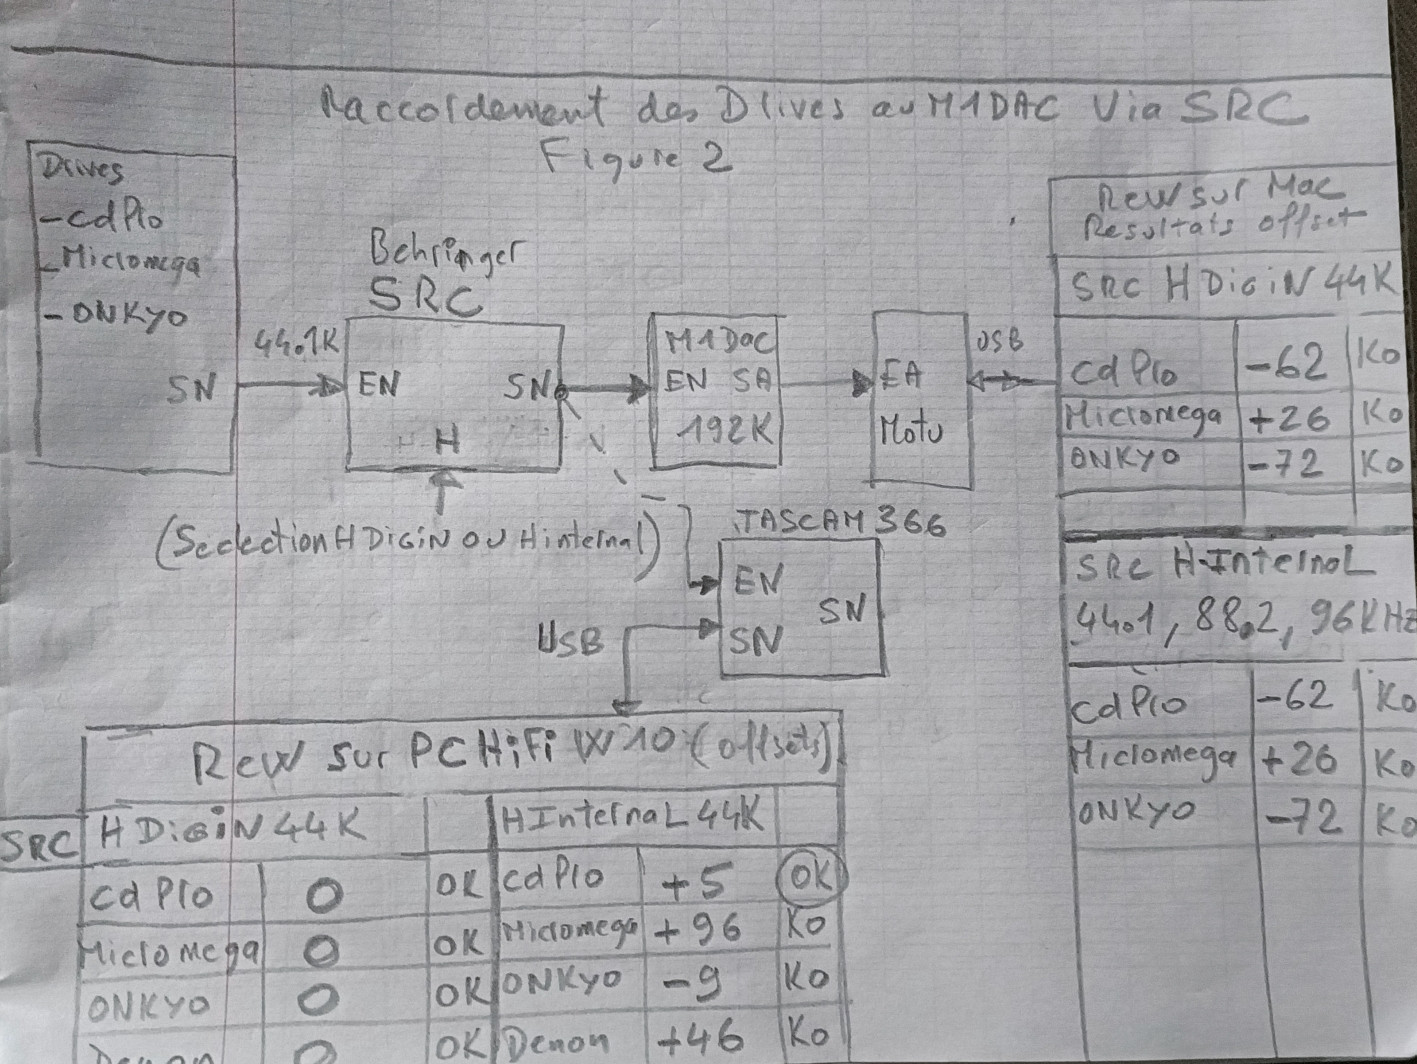 Raccordement des Drives au M1DAC Via SRC
Figure 2
Drives
- cd Pro
- Micromega
- ONKYO
SN
44.1K
Behringer
SRC
EN SN
H
M1DAC
EN SA
192K
EA
Motu
USB
(Selection H DiGiN OU H internal)
TASCAM 366
EN
SN
SN
USB
Rew sur Mac
Resultats offset
SRC H DiGiN 44K
cd Pro -62 Ko
Micromega +26 Ko
ONKYO -72 Ko
SRC H-Internal
44.1, 88.2, 96KHz
cd Pro -62 Ko
Micromega +26 Ko
ONKYO -72 Ko
Rew sur PC HiFi W10 (offsets)
SRC H DiGiN 44K H Internal 44K
cd Pro 0 OK cd Pro +5 OK
Micromega 0 OK Micromega +96 Ko
ONKYO 0 OK ONKYO -9 Ko
Denon 0 OK Denon +46 Ko